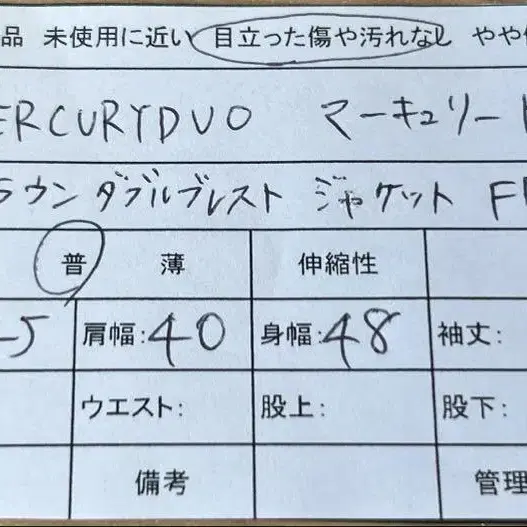 品 未使用に近い 目立った傷や汚れなし やや
ERCURYDUO マーキュリー
ラウン ダブルブレスト ジャケット F
普 薄 伸縮性
5 肩幅:40 身幅:48 袖丈:
ウエスト: 股上: 股下:
備考 管理